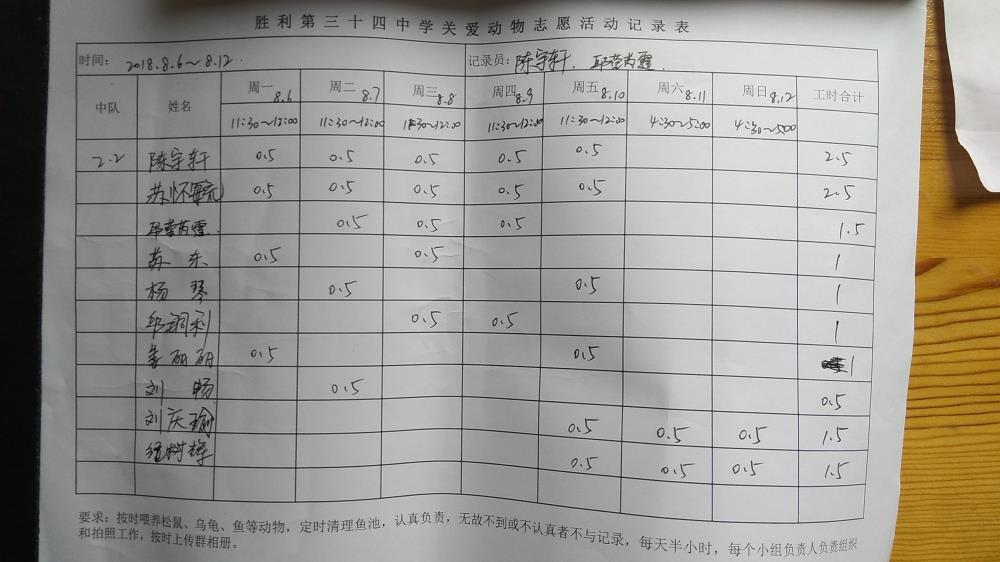 胜利第三十四中学关爱动物志愿活动记录表
时间： 2018.8.6～8.12. 记录员：陈宇轩、邱莹芮霆
中队 姓名 周一8.6 周二8.7 周三8.8 周四8.9 周五8.10 周六8.11 周日8.12 工时合计
11:30~12:00 11:30~12:00 11:30~12:00 11:30~12:00 11:30~12:00 4:30~5:00 4:30~5:00
2.2 陈宇轩 0.5 0.5 0.5 0.5 0.5 2.5
苏怀 0.5 0.5 0.5 0.5 0.5 2.5
邱莹芮霆 0.5 0.5 0.5 1.5
苏东 0.5 0.5 1
杨琴 0.5 0.5 1
邱利 0.5 0.5 1
研研 0.5 0.5 1
刘畅 0.5 0.5
刘庆瑜 0.5 0.5 0.5 1.5
树 0.5 0.5 0.5 1.5
要求：按时喂养松鼠、乌龟、鱼等动物，定时清理鱼池，认真负责，无故不到或不认真者不与记录，每天半小时，每个小组负责人负责组织
和拍照工作，按时上传群相册。